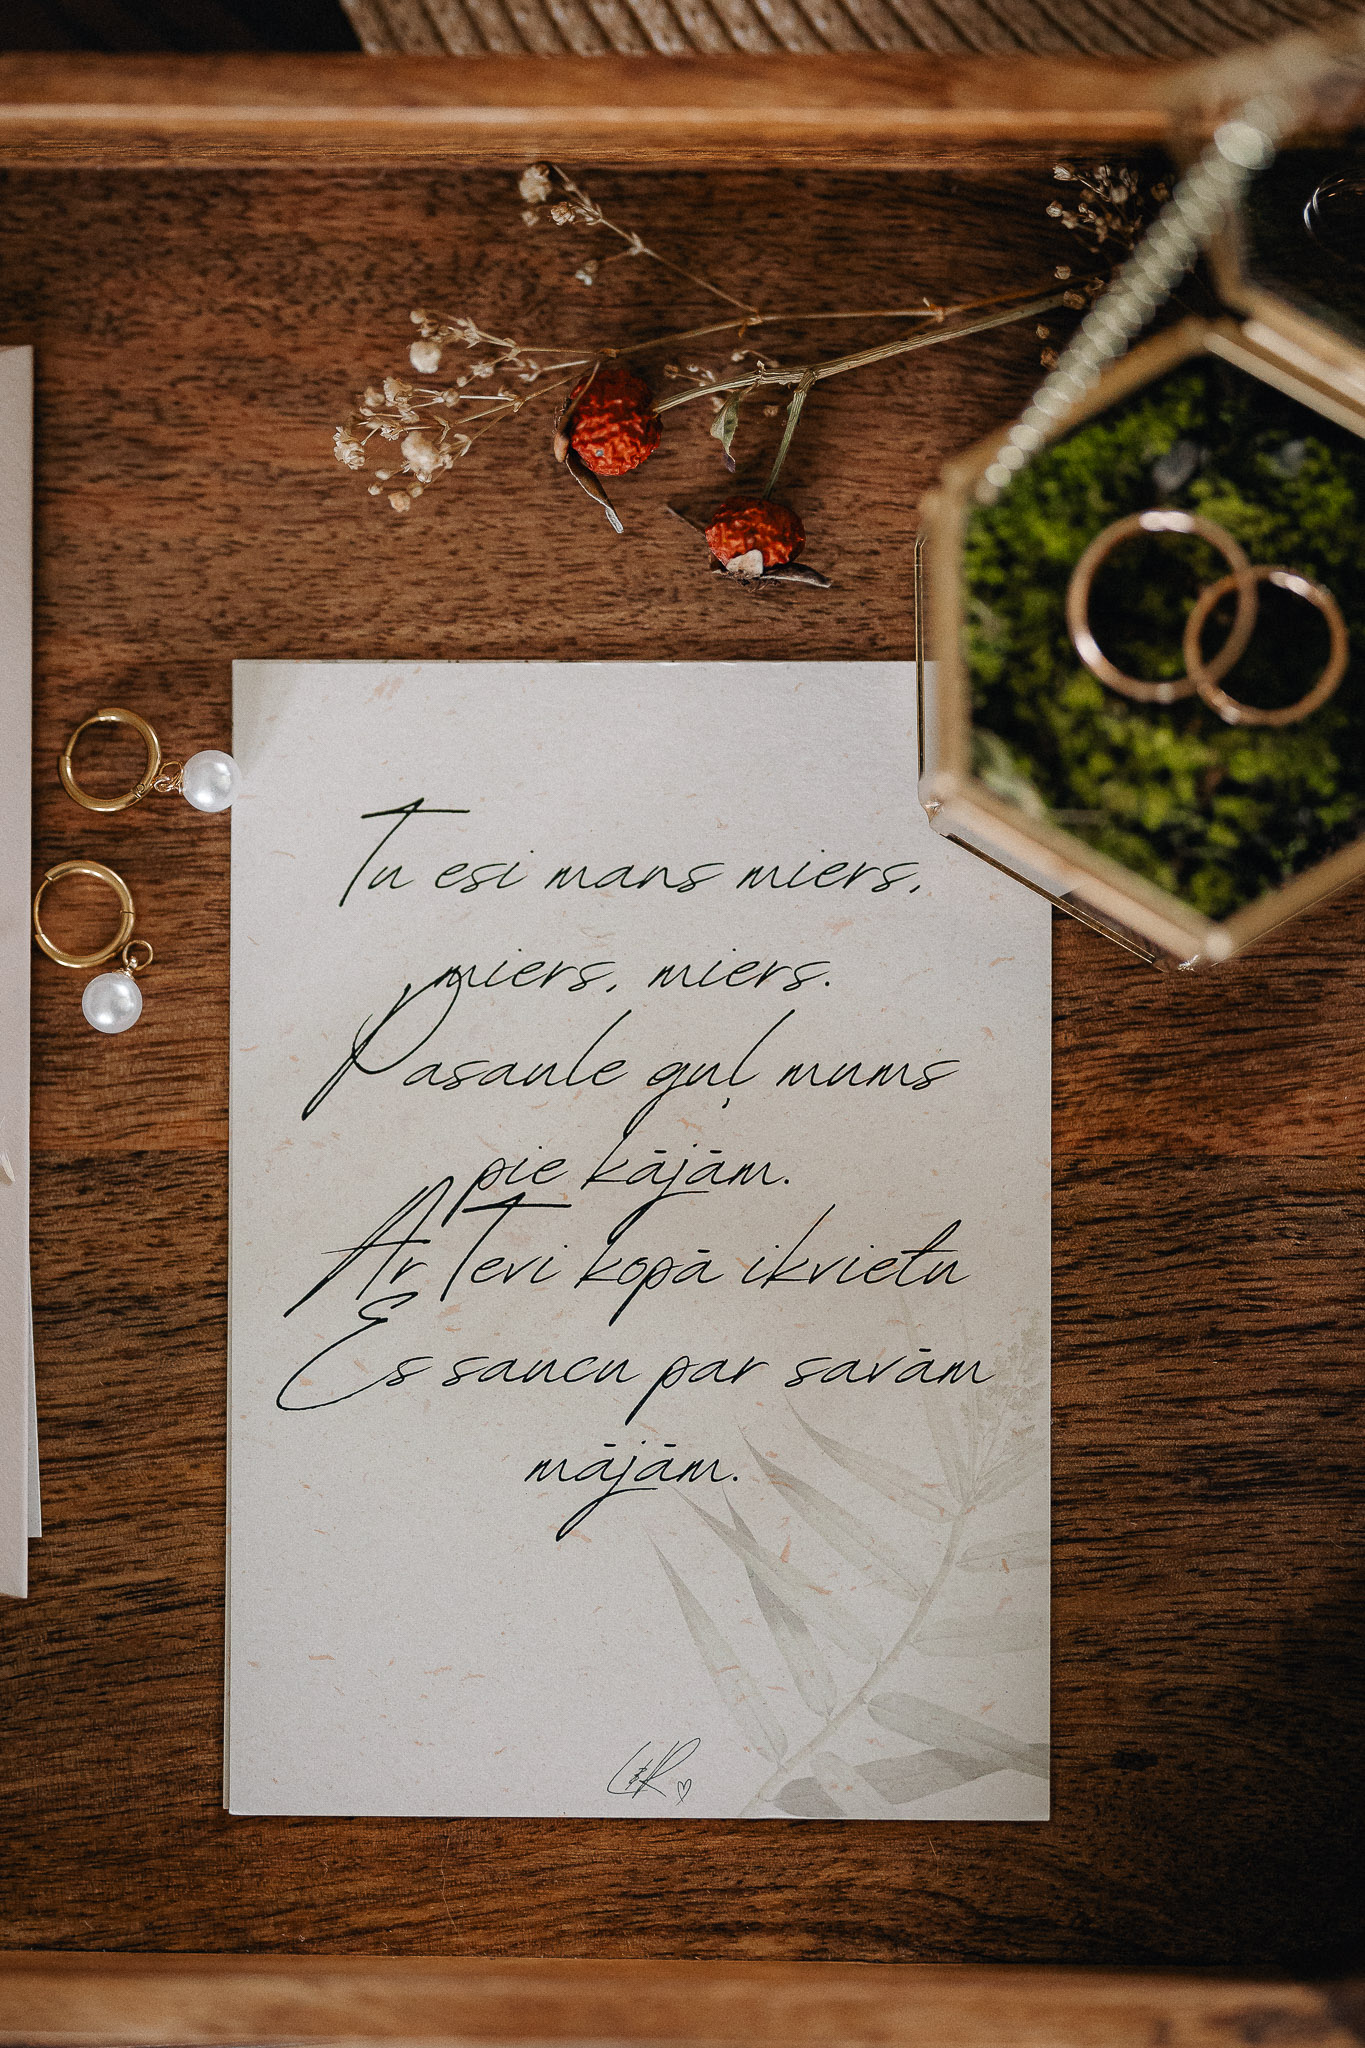 Tu esi mans miers,
miers, miers.
Pasaule guļ mums
pie kājām.
Ar Tevi kopā ikvietu
Es saucu par savām
mājām.
L&R ♡